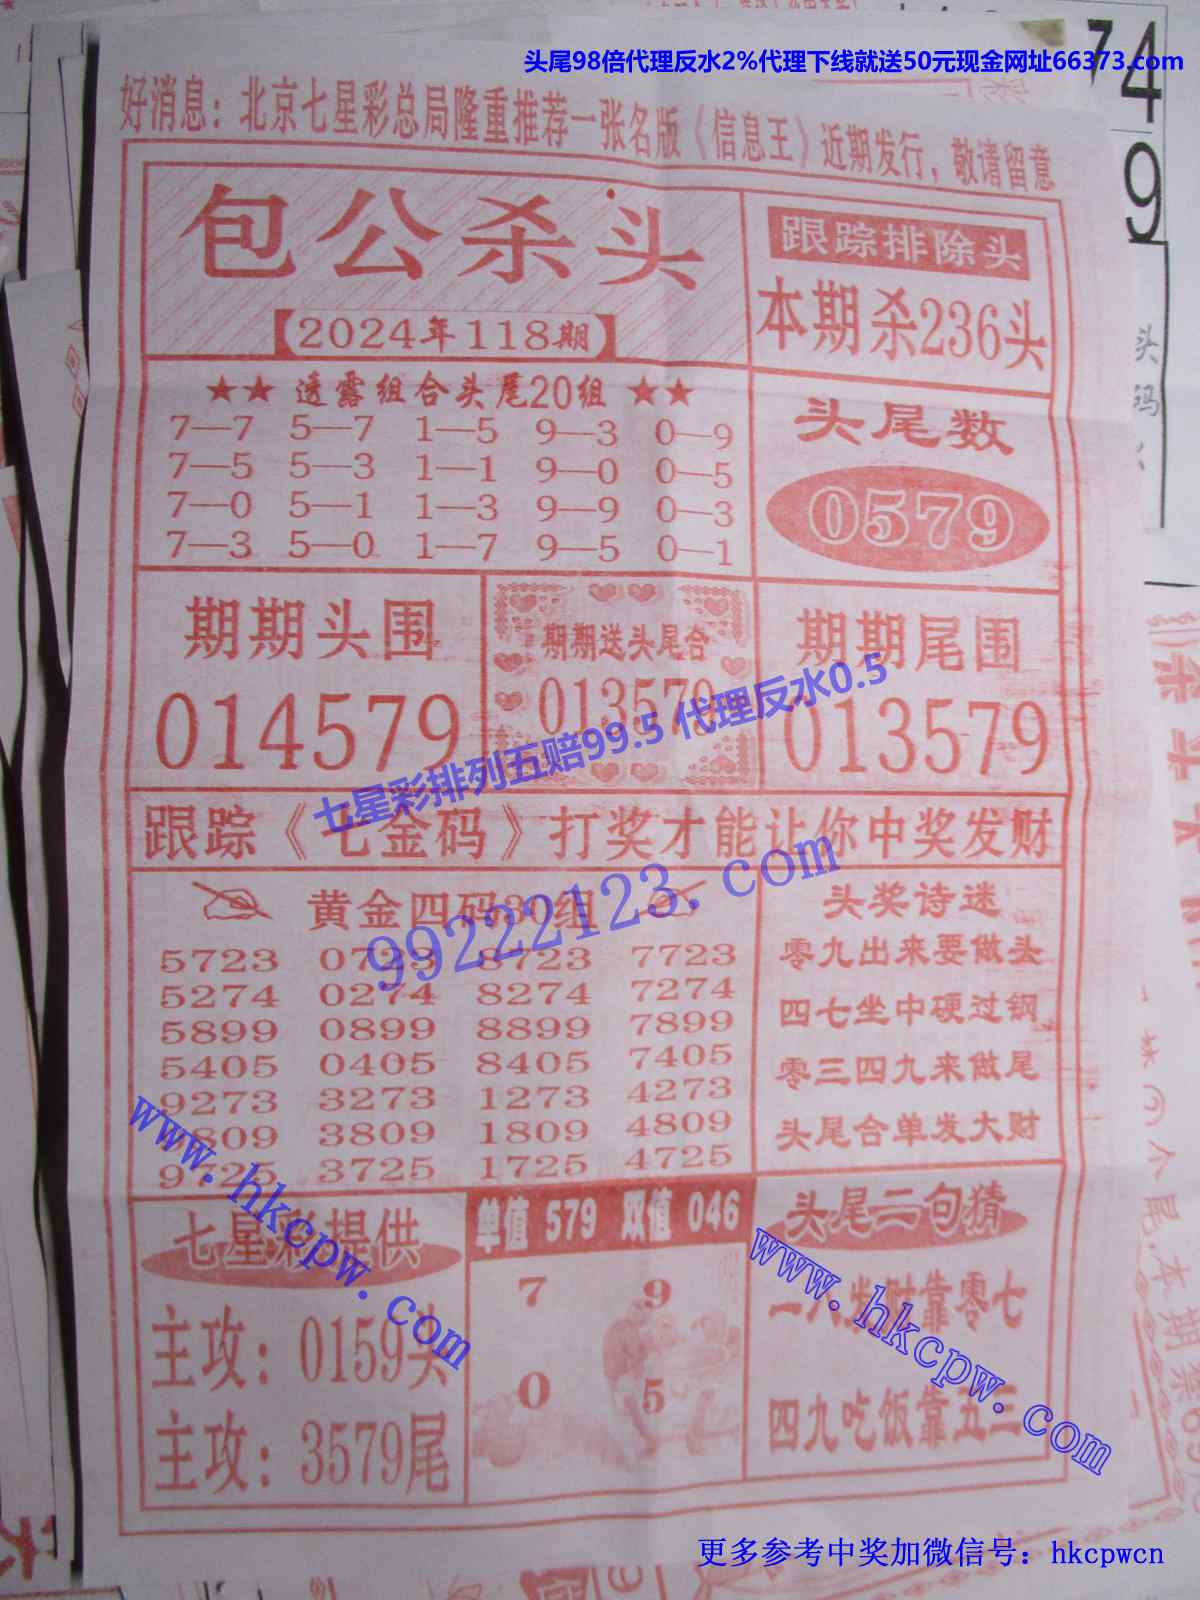 头尾98倍代理反水2%代理下线就送50元现金网址66373.com
74
9
好消息：北京七星彩总局隆重推荐一张名版《信息王》近期发行，敬请留意
包公杀头
【2024年118期】
跟踪排除头
本期杀236头
★★ 透露组合头尾20组 ★★
7—7 5—7 1—5 9—3 0—9
7—5 5—3 1—1 9—0 0—5
7—0 5—1 1—3 9—9 0—3
7—3 5—0 1—7 9—5 0—1
头尾数
0579
期期头围
014579
期期送头尾合
013579
期期尾围
013579
七星彩排列五赔99.5 代理反水0.5
跟踪《七金码》打奖才能让你中奖发财
黄金四码30组
99222123.com
5723 0723 8723 7723
5274 0274 8274 7274
5899 0899 8899 7899
5405 0405 8405 7405
9273 3273 1273 4273
9809 3809 1809 4809
9725 3725 1725 4725
头奖诗迷
零九出来要做头
四七坐中硬过钢
零三四九来做尾
头尾合单发大财
www.hkcpw.com
七星彩提供
主攻：0159头
主攻：3579尾
单值 579 双值 046
7 9
0 5
头尾二句猜
一八发财靠零七
四九吃饭靠五三
www.hkcpw.com
头
码
个尾.本期杀
更多参考中奖加微信号：hkcpwcn